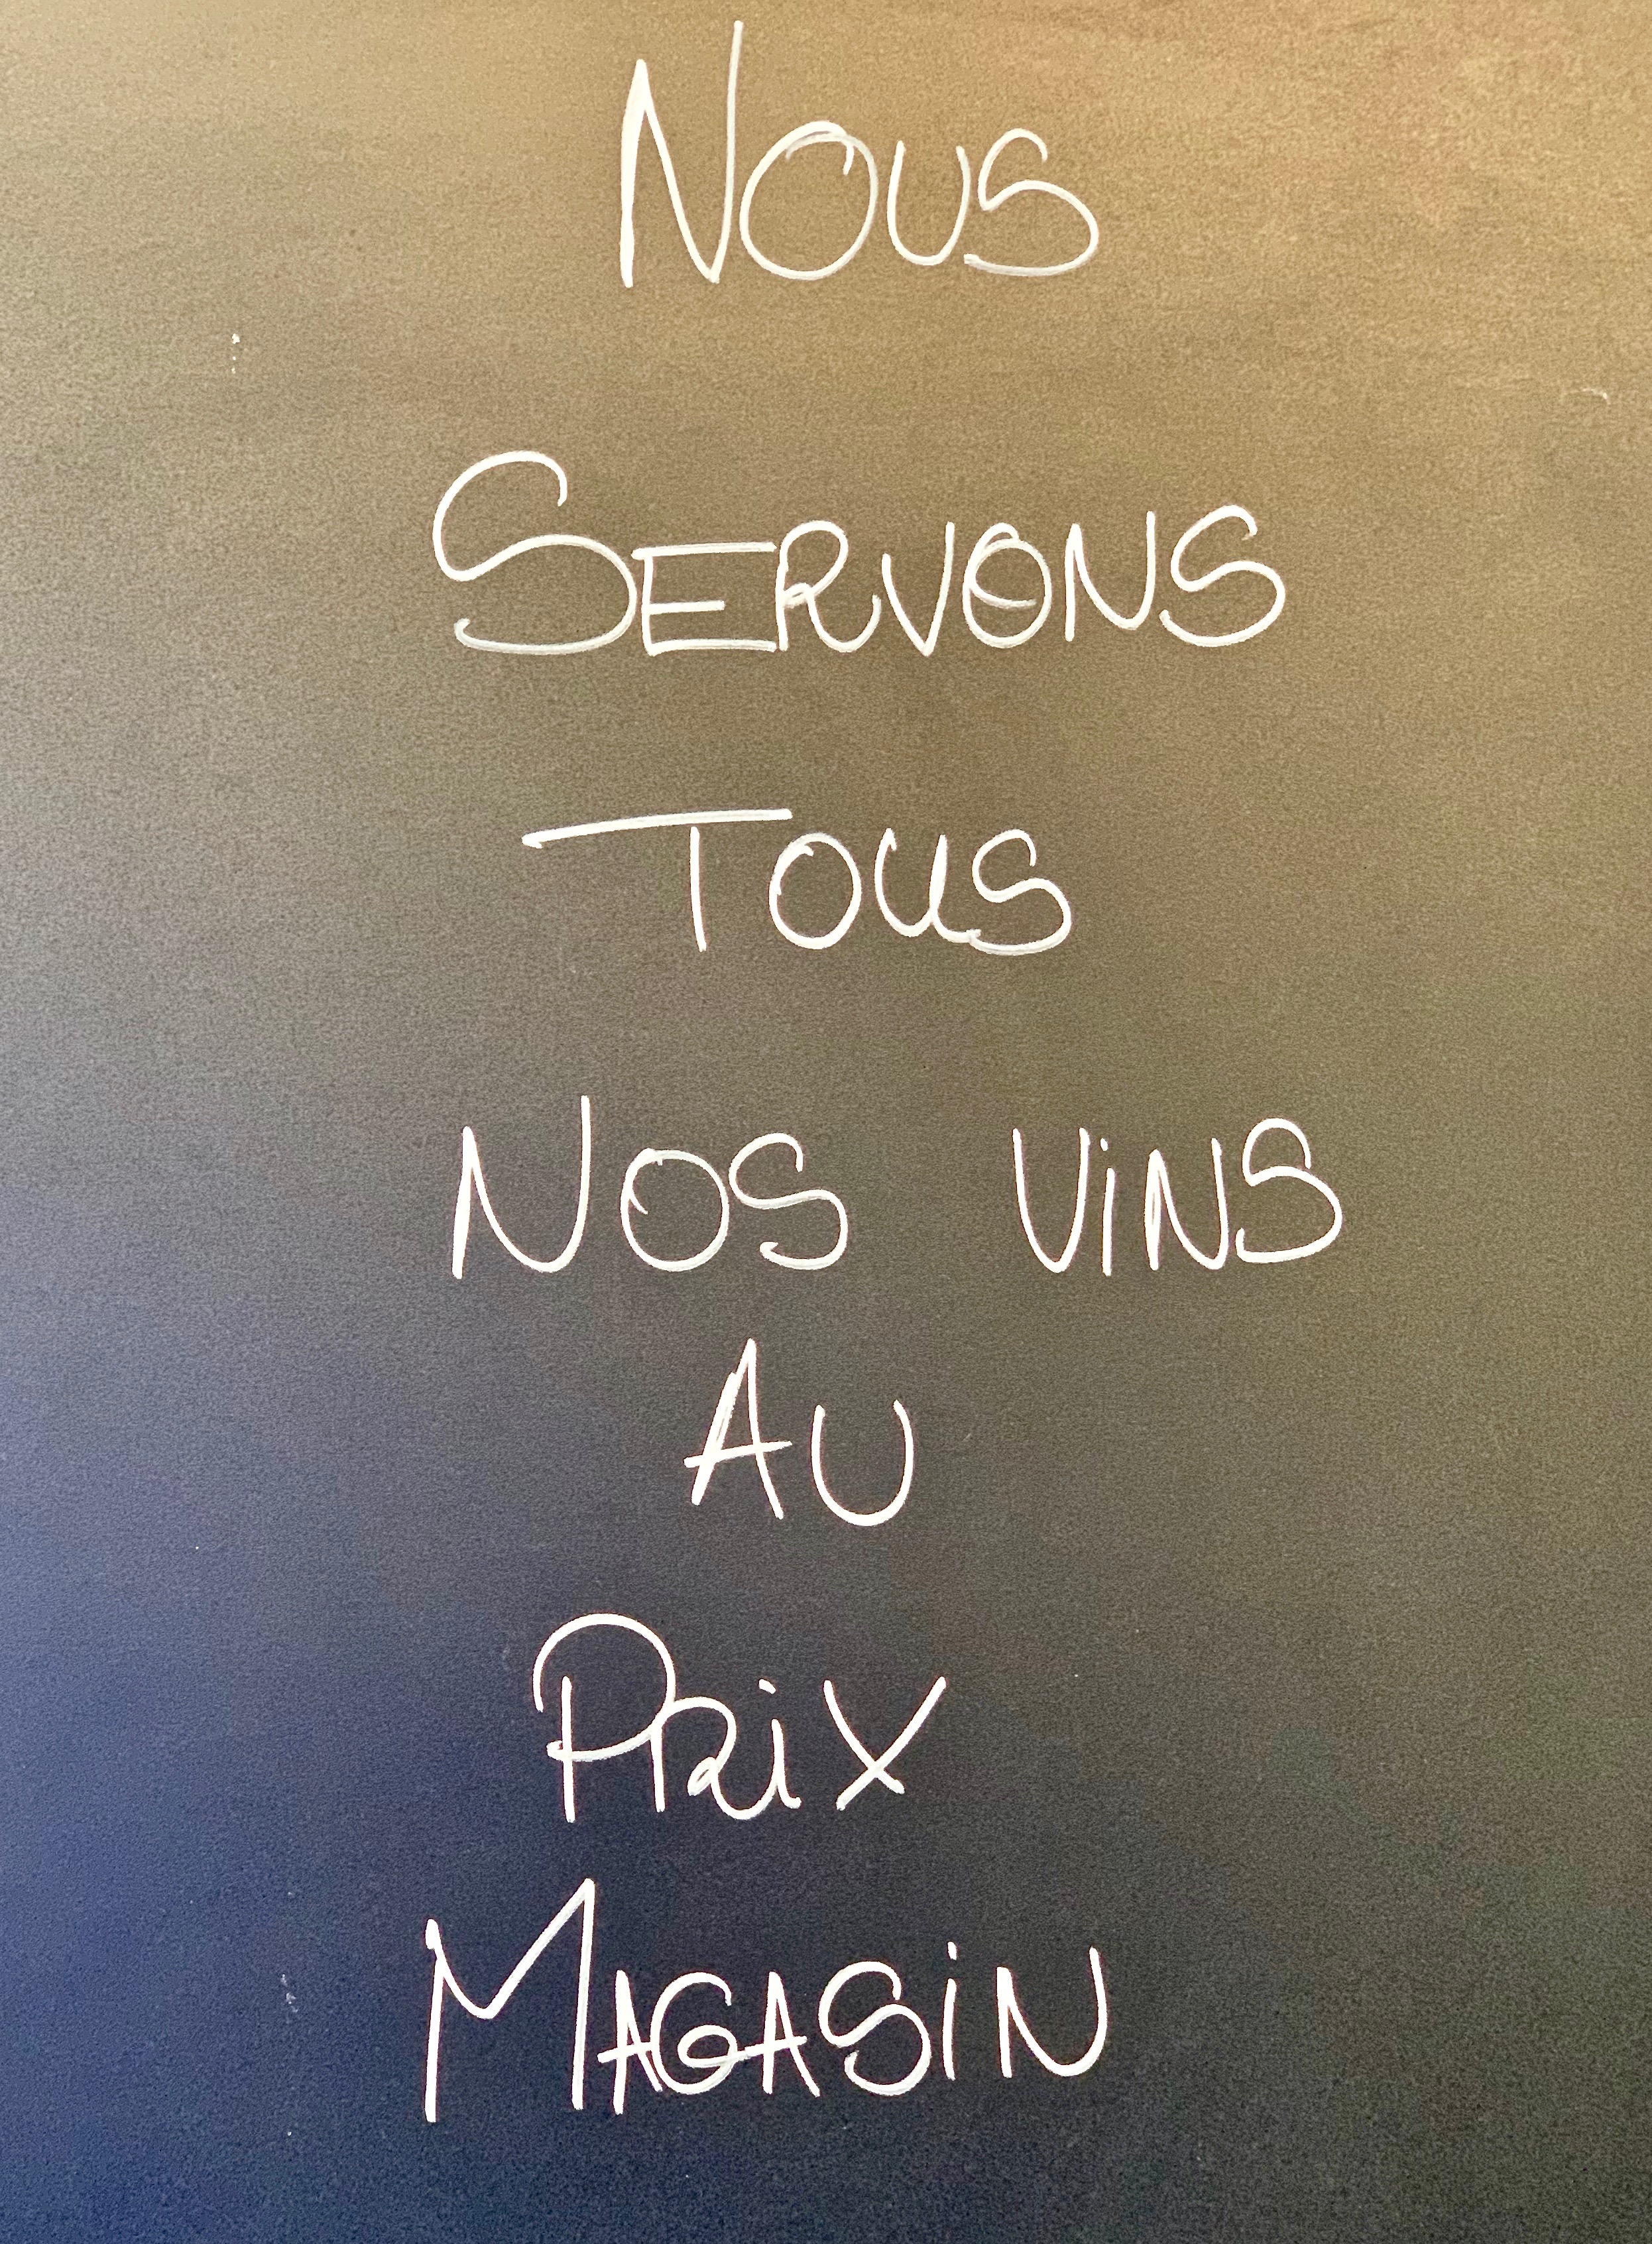 NOUS
SERVONS
TOUS
NOS ViNS
AU
PRiX
MAGASiN